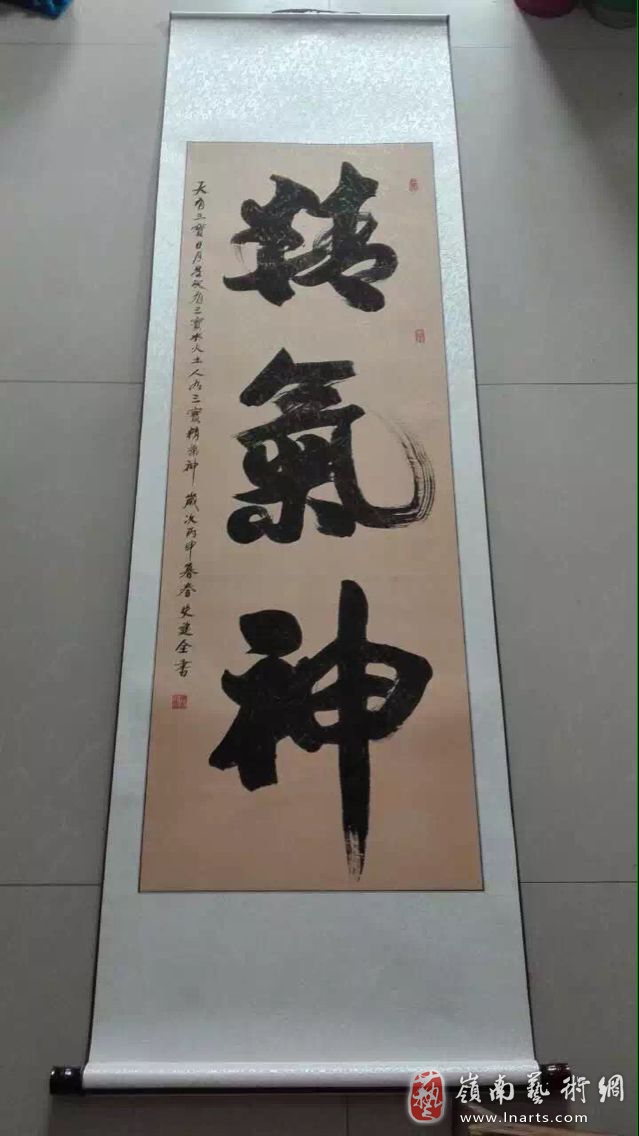 精氣神
天有三寶日月星地有三寶水火土人有三寶精氣神 歲次丙申暮春 史建全書
嶺南藝術網
www.lnarts.com